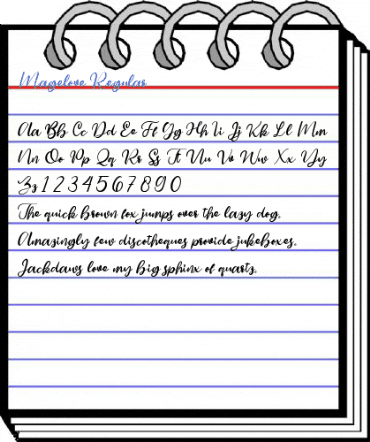 Magelove Regular
Aa Bb Cc Dd Ee Ff Gg Hh Ii Jj Kk Ll Mm
Nn Oo Pp Qq Rr Ss Tt Uu Vv Ww Xx Yy
Zz 1 2 3 4 5 6 7 8 9 0
The quick brown fox jumps over the lazy dog.
Amazingly few discotheques provide jukeboxes.
Jackdaws love my big sphinx of quartz.